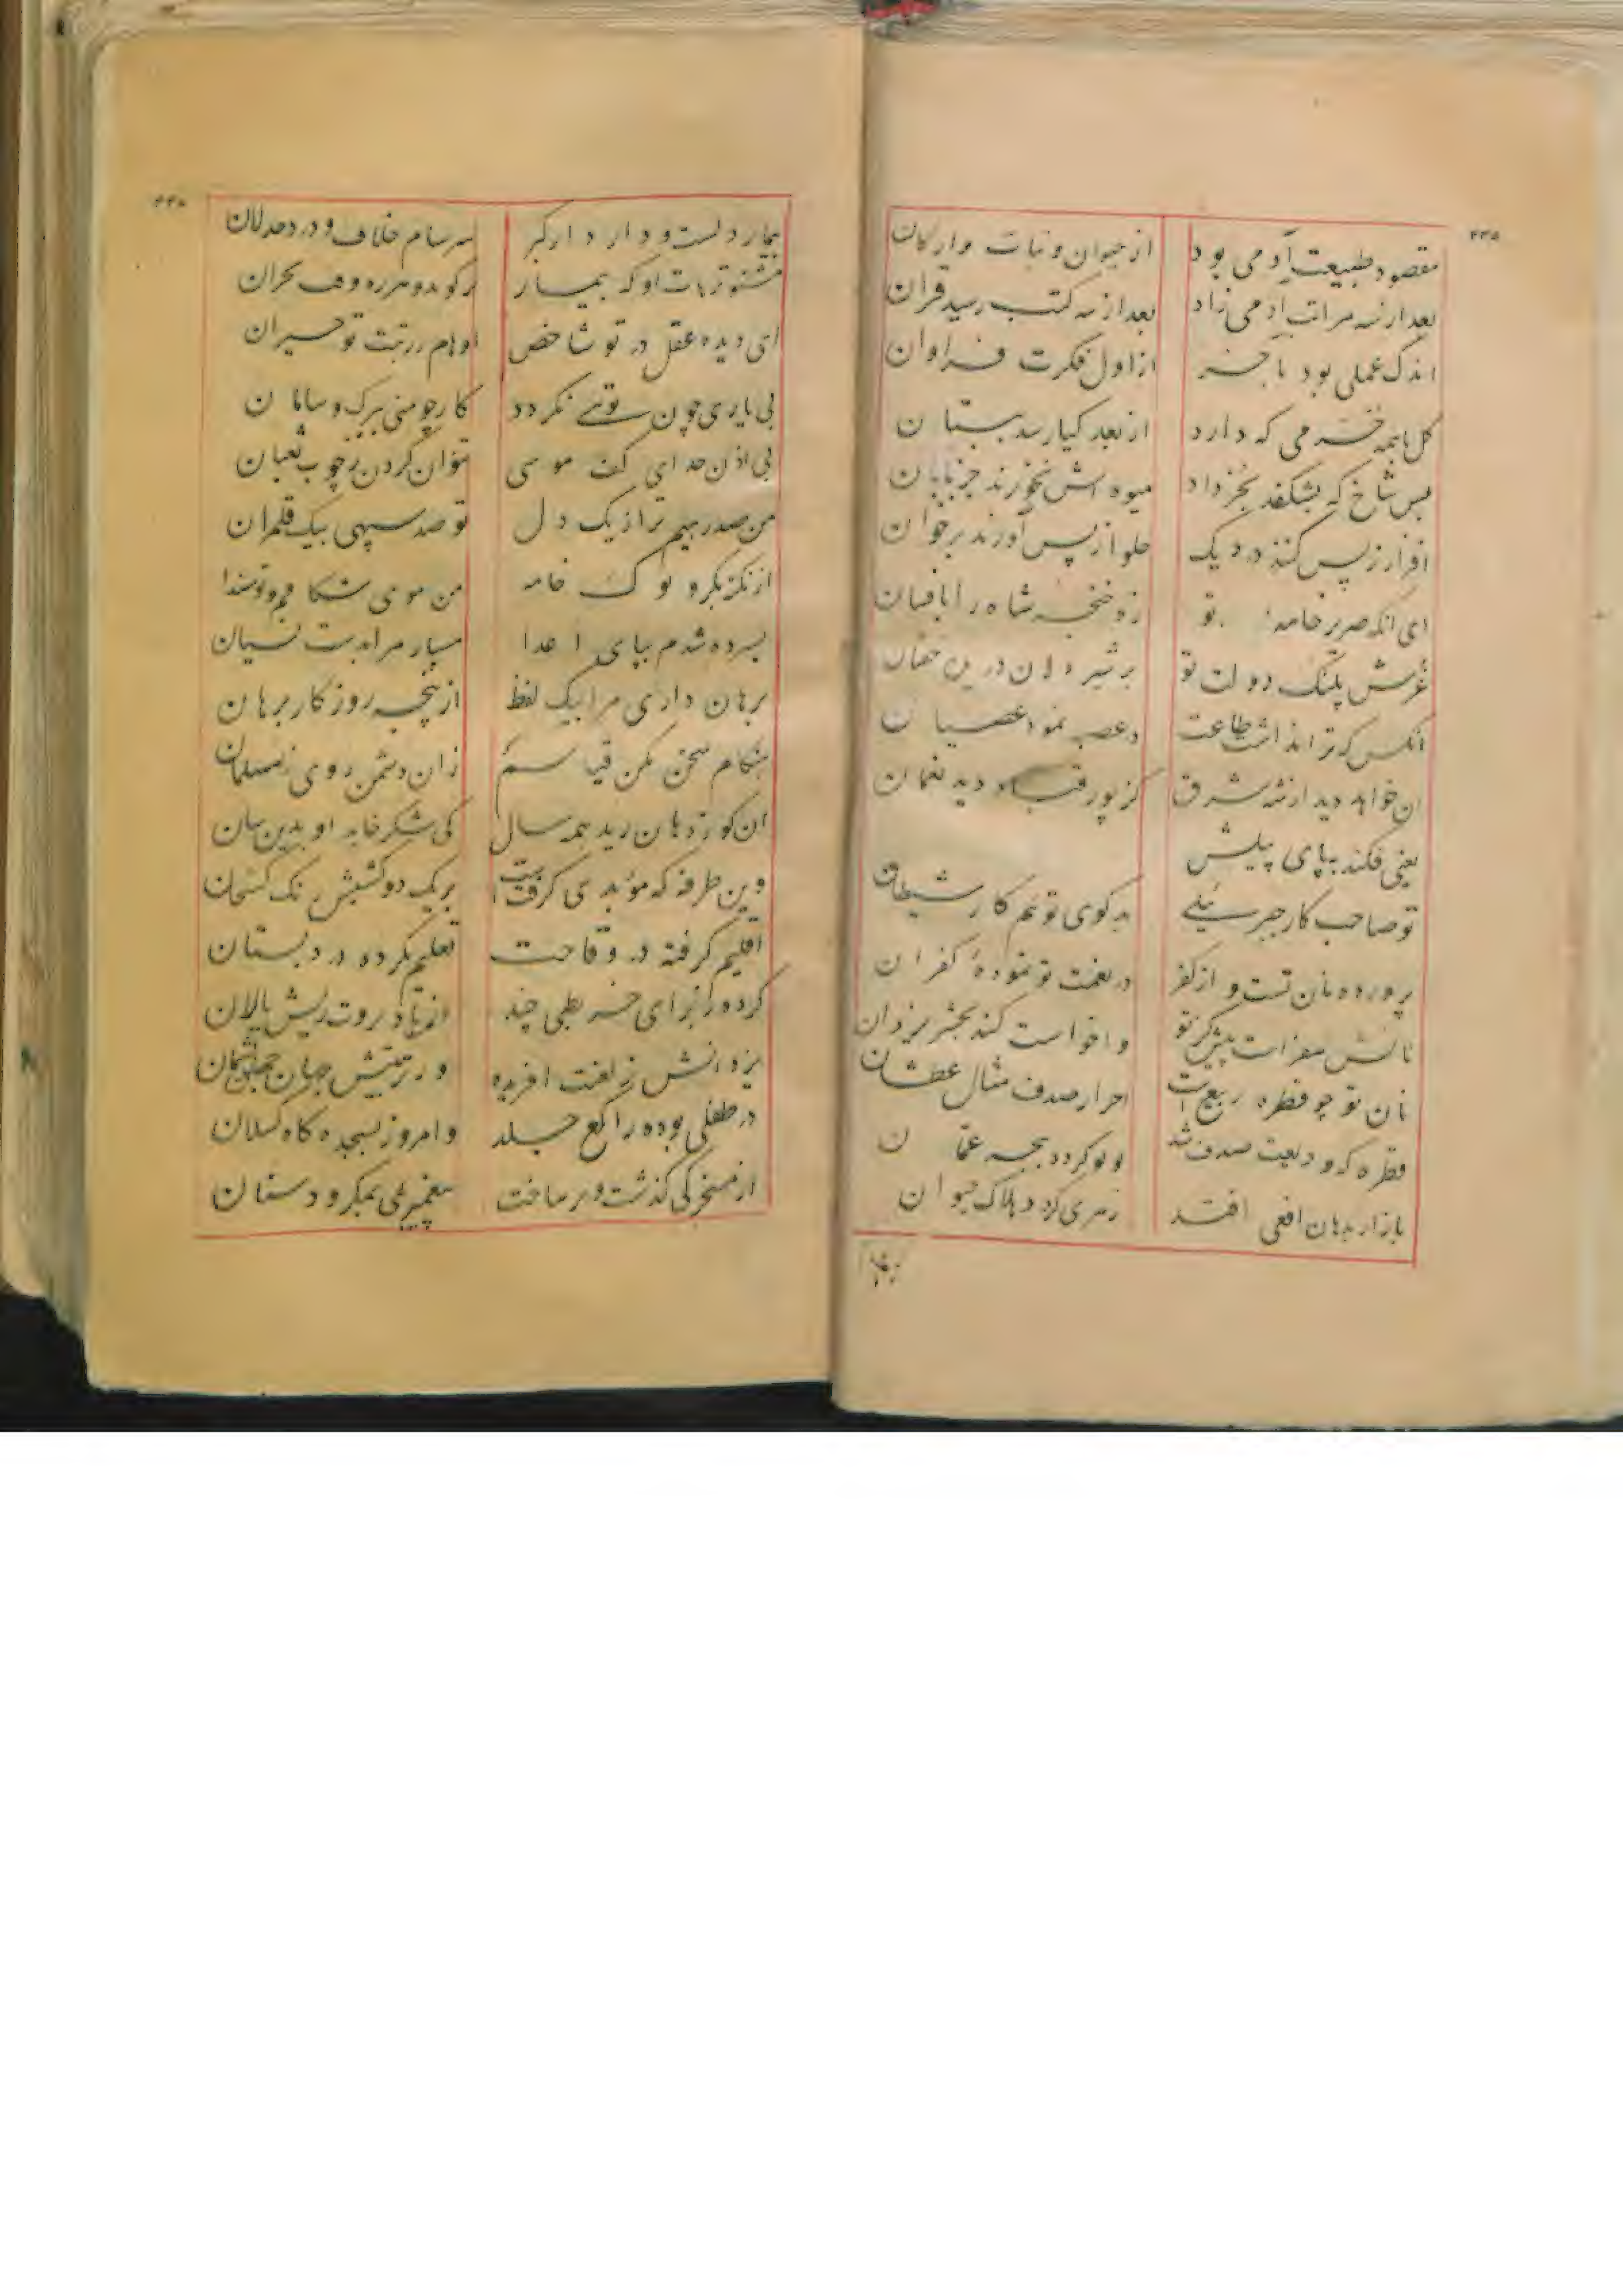 ۴۳۵
مقصود طبیعت آدمی بود از حیوان و نبات و ارکان
بعد از سه مراتب آدمی زاد بعد از سه کتب رسید قران
اندک عملی بود باخر از اول فکرت فراوان
کل با همه خرمی که دارد از بعد کیا رسد ببستان
بس شاخ که بشکفد بخرداد میوه اش نخورند جز بابان
افزار ز پس کنند در دیک حلوا ز پس آورند بر خوان
ای انکه صریر خامه تو زه خنجر شاه را
غرش پلنک دولت تو بر شیر دلان درین
انکس که ترا نداشت طاعت نمود عصیان
ان خواهد دید از شه شرق کز پور قباد دید نعمان
یعنی فکند بپای پیلش
تو صاحب کار جبرئیلی بدکوی تو هم کار شیطان
پرورده نان تست و از کفر در نعمت تو نموده کفران
نانش مفرست پیش کز تو واخواست کند بحشر یزدان
نان تو چو قطره ربیع است احرار صدف مثال عطشان
قطره که ودیعت صدف شد لولو کردد ببحر عمان
باز ار بدهان افعی افتد زهری کردد هلاک حیوان
بیمار دلست و دارد از کبر سرسام خلاف و درد
مشنو ترهات او که بیمار کوید هرزه وقت بحران
ای دیده عقل در تو شاخص اوهام ز رتبت تو حیران
بی یاری چون تویی نکردد کار چو منی ببرک و سامان
بی اذن خدای کف موسی نتوان کردن ز چوب ثعبان
من صدرهیم ترا ز یک دل تو صد سپهی بیک قلمران
از نکته بکر و نوک خامه من موی شکافم و تو
بسپرده شدم بپای اعدا مسپار مرا بدست نسیان
برهان داری مرا بیک لفظ از پنجه روزکار برهان
هنکام سخن مکن قیاسم زان دشمن روی نامسلمان
ان کو ز دهان رید همه سال کی شکر خاید او بدین سان
وین طرفه که موبدی کرفتست بر یک دو کشیش رنک کشخان
اقلیم کرفته در وقاحت تعلیم نکرده در دبستان
کرده ز برای خربطی چند از باد بروت ریش پالان
یزدانش ز لعنت افریده
در طفلی بوده راکع جلد و امروز بسجده کاه کسلان
از مسخرکی کذشت و بر ساخت پیغمبریی بمکر و دستان